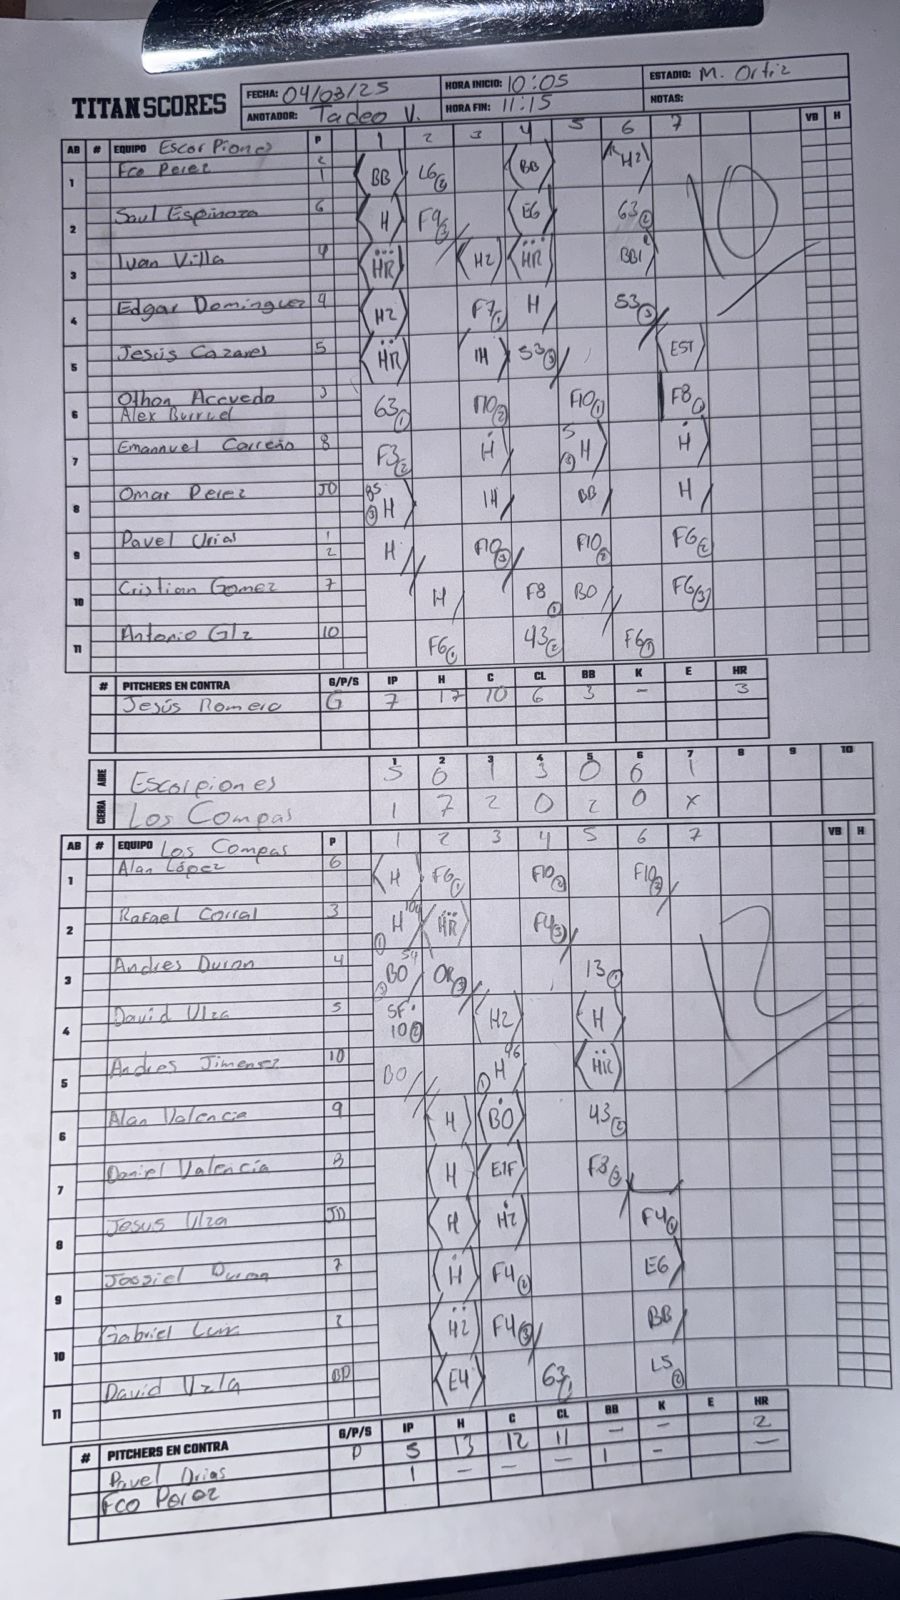 TITAN SCORES
FECHA: 04/03/25 HORA INICIO: 10:05 ESTADIO: M. Ortiz
ANOTADOR: Tadeo V. HORA FIN: 11:15 NOTAS:
AB # EQUIPO Escorpiones P 1 2 3 4 5 6 7 VB H
1 Fco Perez 2 1 BB L6② BB H2
2 Saul Espinoza 6 H F9③ E6 63②
3 Ivan Villa 4 HR H2 HR BBI
4 Edgar Dominguez 9 H2 F7① H 53③
5 Jesús Cazares 5 HR IH 53③ EST
6 Othon Acevedo 3 63① F10② F10① F8①
Alex Burruel
7 Emannuel Carreño 8 F3② H 5③ H H
8 Omar Perez JD 85③ H IH BB H
9 Pavel Urias 1 2 H F10③ F10② F6②
10 Cristian Gomez 7 H F8① BO F6③
11 Antonio Glz 10 F6① 43② F6①
10
# PITCHERS EN CONTRA G/P/S IP H C CL BB K E HR
Jesús Romero G 7 17 10 6 3 - 3
1 2 3 4 5 6 7 8 9 10
ABRE Escorpiones 5 0 1 3 0 0 1
CIERRA Los Compas 1 7 2 0 2 0 x
AB # EQUIPO Los Compas P 1 2 3 4 5 6 7 VB H
1 Alan López 6 H F6① F10② F10③
2 Rafael Corral 3 ① H 104 HR F4③
3 Andres Duran 4 BO 54 OR③ 13①
4 David Ulza 5 SF 10② H2 H
5 Andres Jimenez 10 BO ① H 96 HR
6 Alan Valencia 9 H BO 43②
7 Daniel Valencia 8 H E1F F8③
8 Jesus Ulza JD H H2 F4①
9 Joosiel Duran 7 H F4② E6
10 Gabriel 2 H2 F4③ BB
11 David Uzla BD E4 63① L5②
12
# PITCHERS EN CONTRA G/P/S IP H C CL BB K E HR
Pavel Urias P 5 13 12 11 - - 2
Fco Perez 1 - - - 1 - -